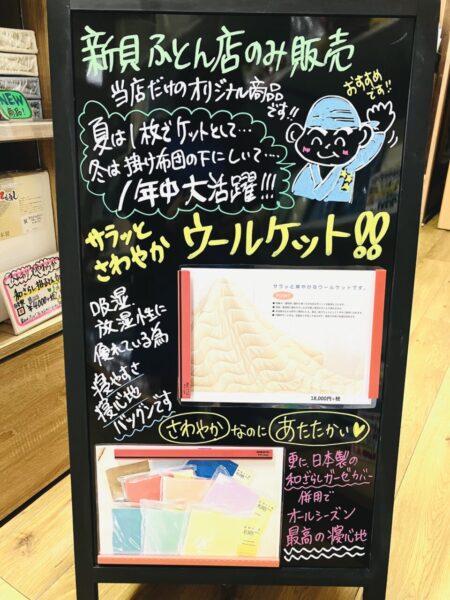 新貝ふとん店のみ販売
当店だけのオリジナル商品
です!!
おすすめ
です!!
夏は1枚でケットとして…
冬は掛け布団の下にしいて…
1年中大活躍!!!
サラッと
さわやか
ウールケット!!
吸湿・
放湿性に
優れている為
寝やすさ
寝心地
バツグンです
サラッと爽やかなウールケットです。
18,000円+税
さわやかなのにあたたかい♥
更に日本製の
和ざらしガーゼカバー
併用で
オールシーズン
最高の寝心地
NEW
商品!